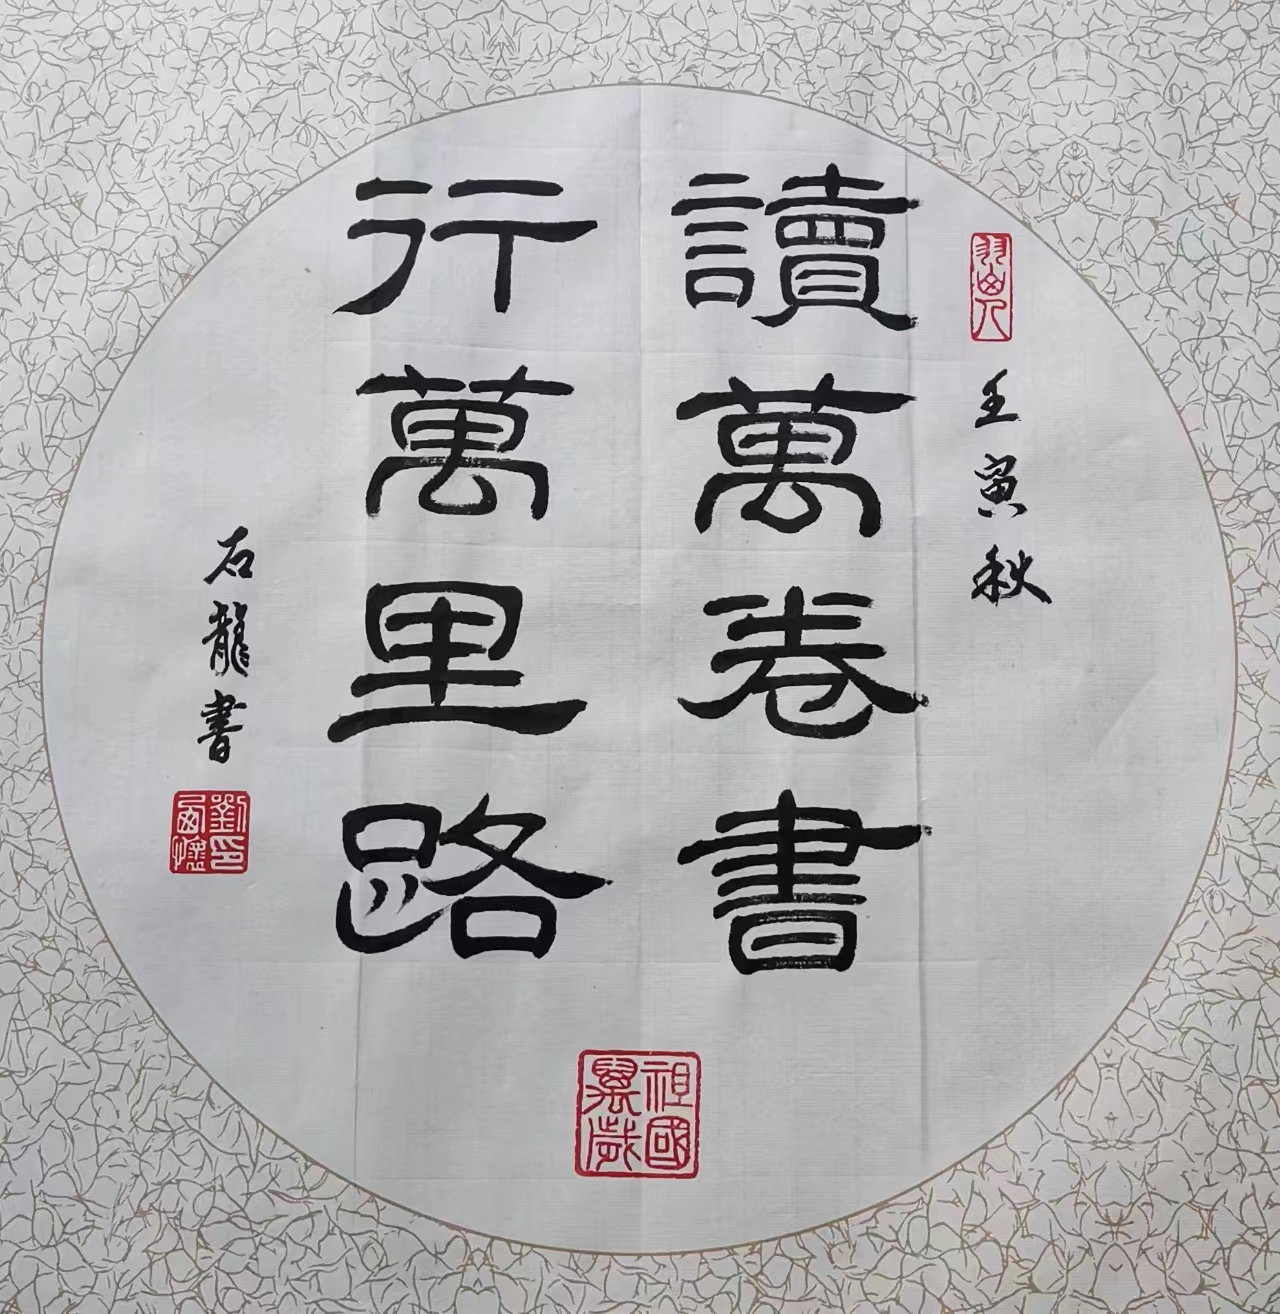 壬寅秋
讀萬卷書
行萬里路
石龍書
祖國萬歲